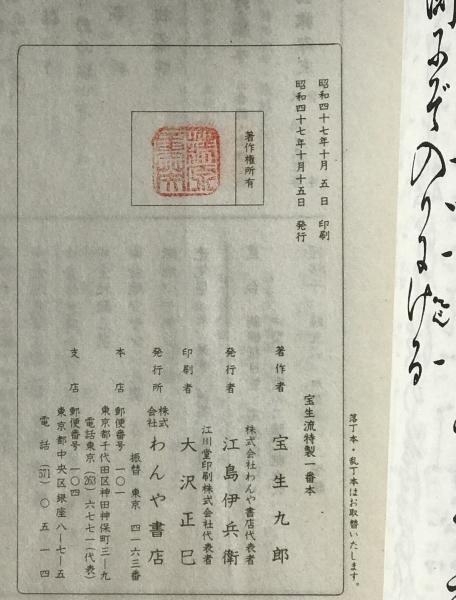 落丁本・乱丁本はお取替いたします。
昭和四十七年十月五日 印刷
昭和四十七年十月十五日 発行
著作権所有
宝生流特製一番本
著作者 宝生九郎
株式会社わんや書店代表者
発行者 江島伊兵衛
江川堂印刷株式会社代表者
印刷者 大沢正巳
発行所 株式会社 わんや書店
振替 東京 四一六三番
本店 郵便番号 一〇一
東京都千代田区神田神保町三ー九
電話東京(263)六七七一(代表)
支店 郵便番号 一〇四
東京都中央区銀座八ー七ー五
電話(571)〇五一四